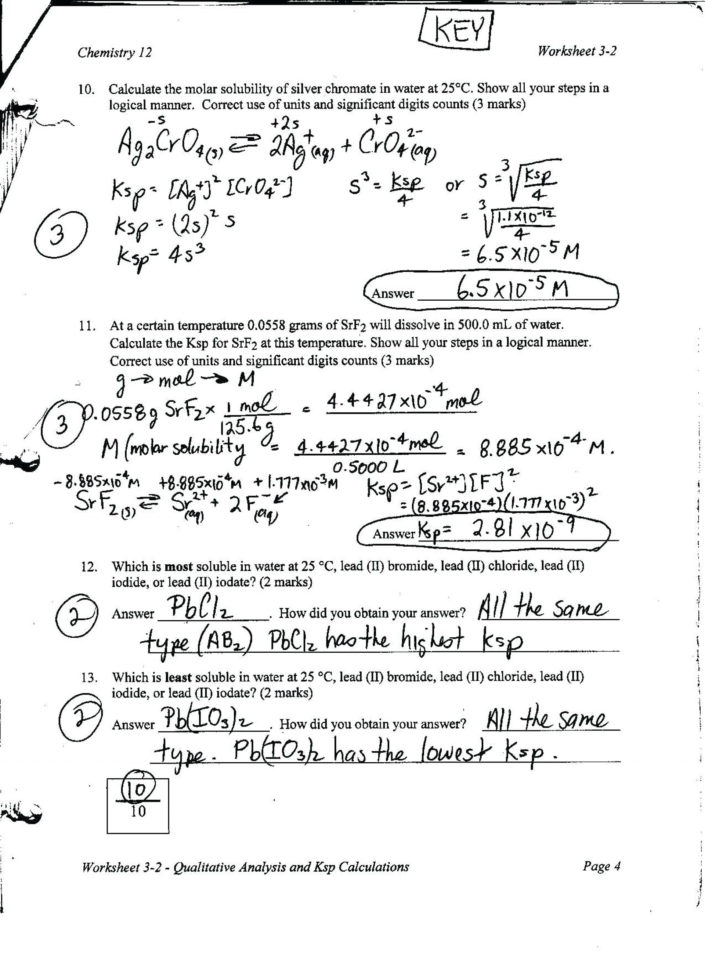 KEY
Chemistry 12 Worksheet 3-2
10. Calculate the molar solubility of silver chromate in water at 25°C. Show all your steps in a
logical manner. Correct use of units and significant digits counts (3 marks)
-s +2s +s
Ag₂CrO₄(s) ⇌ 2Ag⁺(aq) + CrO₄²⁻(aq)
Ksp = [Ag⁺]² [CrO₄²⁻] S³ = Ksp/4 or S = ³√(Ksp/4)
3 Ksp = (2s)² s = ³√(1.1×10⁻¹²/4)
Ksp = 4s³ = 6.5 × 10⁻⁵ M
Answer 6.5 × 10⁻⁵ M
11. At a certain temperature 0.0558 grams of SrF₂ will dissolve in 500.0 mL of water.
Calculate the Ksp for SrF₂ at this temperature. Show all your steps in a logical manner.
Correct use of units and significant digits counts (3 marks)
g → mol → M
3 0.0558g SrF₂ × 1 mol/125.6g = 4.4427×10⁻⁴ mol
M (molar solubility = 4.4427×10⁻⁴ mol/0.5000 L = 8.885 × 10⁻⁴ M.
-8.885×10⁻⁴M +8.885×10⁻⁴M +1.777×10⁻³M Ksp = [Sr²⁺][F⁻]²
SrF₂(s) ⇌ Sr²⁺(aq) + 2F⁻(aq) = (8.885×10⁻⁴)(1.777×10⁻³)²
Answer Ksp = 2.81 × 10⁻⁹
12. Which is most soluble in water at 25 °C, lead (II) bromide, lead (II) chloride, lead (II)
iodide, or lead (II) iodate? (2 marks)
2 Answer PbCl₂. How did you obtain your answer? All the same
type (AB₂) PbCl₂ has the highest Ksp
13. Which is least soluble in water at 25 °C, lead (II) bromide, lead (II) chloride, lead (II)
iodide, or lead (II) iodate? (2 marks)
2 Answer Pb(IO₃)₂. How did you obtain your answer? All the same
type. Pb(IO₃)₂ has the lowest Ksp.
10
10
Worksheet 3-2 - Qualitative Analysis and Ksp Calculations Page 4